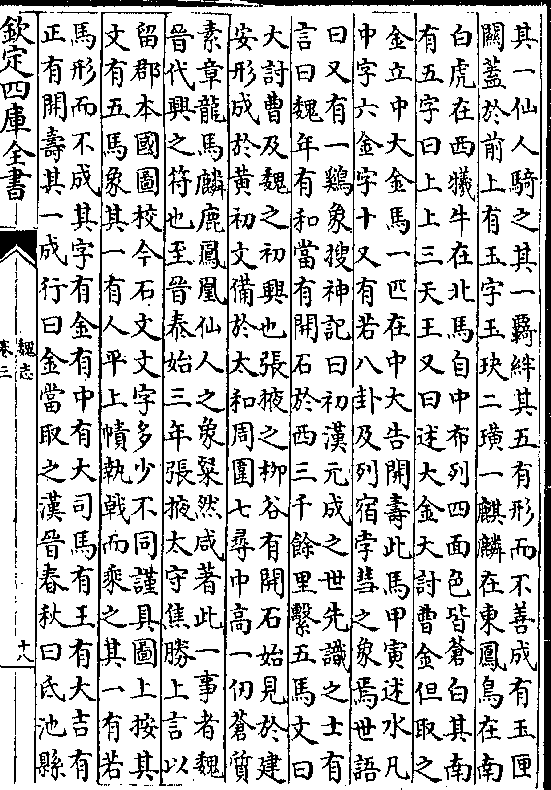 其一仙人騎之其一羇絆其五有形而不善成有玉匣
關蓋於前上有玉字玉玦二璜一麒麟在東鳳鳥在南
白虎在西犧牛在北馬自中布列四面色皆蒼白其南
有五字曰上上三天王又曰述大金大討曹金但取之
金立中大金馬一匹在中大告開壽此馬甲寅述水凡
中字六金字十又有若八卦及列宿孛彗之象焉世語
曰又有一鷄象搜神記曰初漢元成之世先識之士有
言曰魏年有和當有開石於西三千餘里繫五馬文曰
大討曹及魏之初興也張掖之柳谷有開石始見於建
安形成於黃初文備於太和周圍七尋中高一仞蒼質
素章龍馬麟鹿鳳凰仙人之象粲然咸著此一事者魏
晉代興之符也至晉泰始三年張掖太守焦勝上言以
留郡本國圖校今石文文字多少不同謹具圖上按其
文有五馬象其一有人平上幘執戟而乘之其一有若
馬形而不成其字有金有中有大司馬有王有大吉有
正有開壽其一成行曰金當取之漢晉春秋曰氐池縣
欽定四庫全書
魏志
卷三
十八